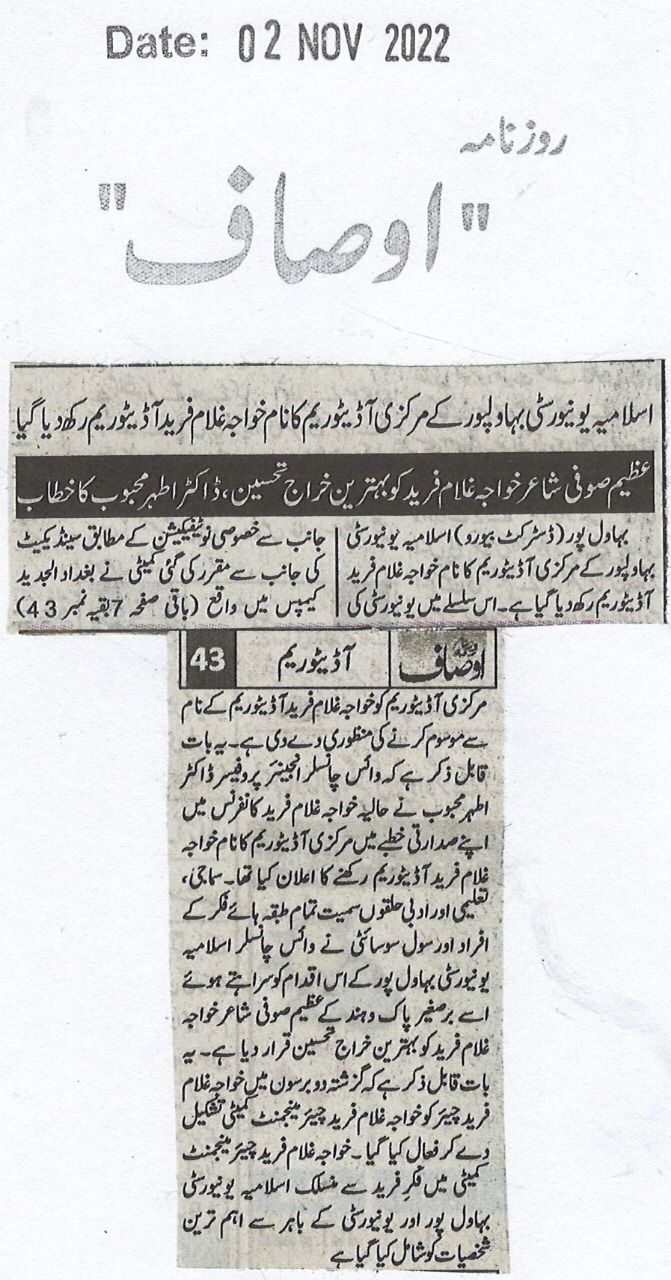 Date: 02 NOV 2022
روزنامہ
"اوصاف"
اسلامیہ یونیورسٹی بہاولپور کے مرکزی آڈیٹوریم کا نام خواجہ غلام فرید آڈیٹوریم رکھ دیا گیا
عظیم صوفی شاعر خواجہ غلام فرید کو بہترین خراج تحسین، ڈاکٹر اطہر محبوب کا خطاب
بہاول پور (ڈسٹرکٹ بیورو) اسلامیہ یونیورسٹی
بہاولپور کے مرکزی آڈیٹوریم کا نام خواجہ غلام فرید
آڈیٹوریم رکھ دیا گیا ہے۔ اس سلسلے میں یونیورسٹی کی
جانب سے خصوصی نوٹیفکیشن کے مطابق سینڈیکیٹ
کی جانب سے مقرر کی گئی کمیٹی نے بغداد الجدید
کیمپس میں واقع (باقی صفحہ 7 بقیہ نمبر 43)
اوصاف
آڈیٹوریم
43
مرکزی آڈیٹوریم کو خواجہ غلام فرید آڈیٹوریم کے نام
سے موسوم کرنے کی منظوری دے دی ہے۔ یہ بات
قابل ذکر ہے کہ وائس چانسلر انجینئر پروفیسر ڈاکٹر
اطہر محبوب نے حالیہ خواجہ غلام فرید کانفرنس میں
اپنے صدارتی خطبے میں مرکزی آڈیٹوریم کا نام خواجہ
غلام فرید آڈیٹوریم رکھنے کا اعلان کیا تھا۔ سماجی،
تعلیمی اور ادبی حلقوں سمیت تمام طبقہ ہائے فکر کے
افراد اور سول سوسائٹی نے وائس چانسلر اسلامیہ
یونیورسٹی بہاول پور کے اس اقدام کو سراہتے ہوئے
اسے برصغیر پاک و ہند کے عظیم صوفی شاعر خواجہ
غلام فرید کو بہترین خراج تحسین قرار دیا ہے۔ یہ
بات قابل ذکر ہے کہ گزشتہ دو برسوں میں خواجہ غلام
فرید چیئر کو خواجہ غلام فرید چیئر مینجمنٹ کمیٹی تشکیل
دے کر فعال کیا گیا۔ خواجہ غلام فرید چیئر مینجمنٹ
کمیٹی میں فکر فرید سے منسلک اسلامیہ یونیورسٹی
بہاول پور اور یونیورسٹی کے باہر سے اہم ترین
شخصیات کو شامل کیا گیا ہے